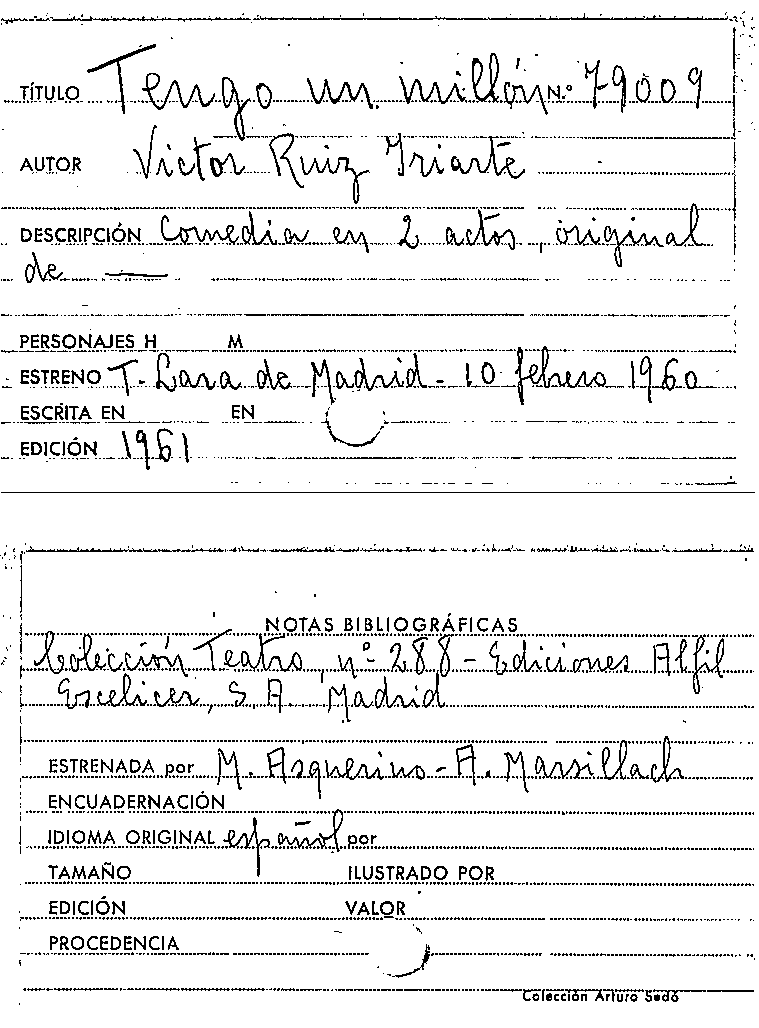 TÍTULO Tengo un millón N.º 79009
AUTOR Victor Ruiz Iriarte
DESCRIPCIÓN Comedia en 2 actos, original
de —
PERSONAJES H M
ESTRENO T. Lara de Madrid - 10 febrero 1960
ESCRITA EN EN
EDICIÓN 1961
NOTAS BIBLIOGRÁFICAS
Colección Teatro, nº 288 - Ediciones Alfil
Escelicer, S. A. Madrid
ESTRENADA por M. Asquerino - A. Marsillach
ENCUADERNACIÓN
IDIOMA ORIGINAL español por
TAMAÑO ILUSTRADO POR
EDICIÓN VALOR
PROCEDENCIA
Colección Arturo Sedó